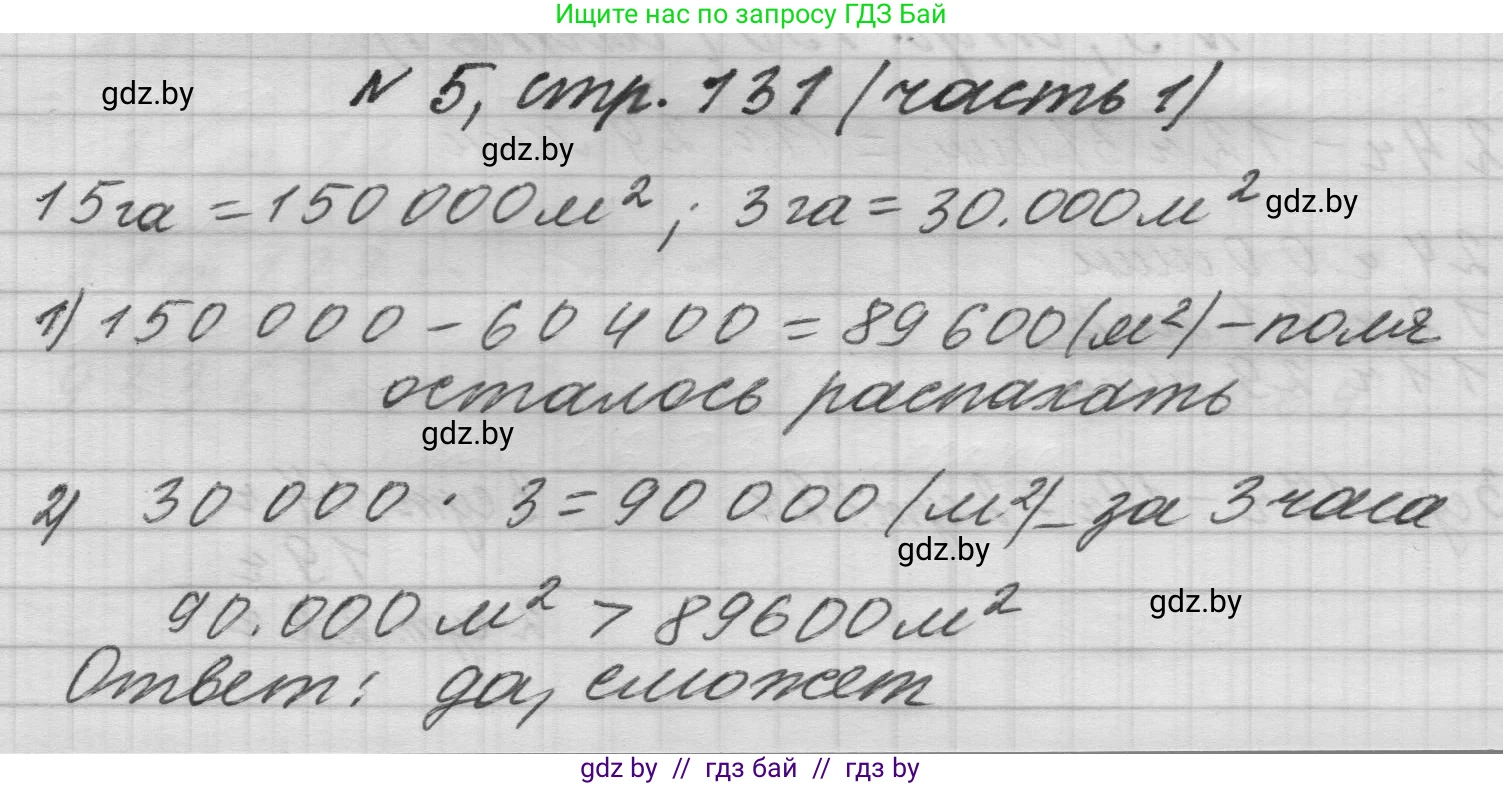 Ищите нас по запросу ГДЗ Бай
N 5, стр. 131 (часть 1)
gdz.by
gdz.by
15га = 150 000м²; 3 га = 30.000м²
gdz.by
1) 150 000 - 60 400 = 89 600(м²) - поля
осталось распахать
gdz.by
2) 30 000 · 3 = 90 000 (м²) - за 3 часа
gdz.by
90.000м² > 89600м²
gdz.by
Ответ: да, сможет
gdz by // гдз бай // гдз by